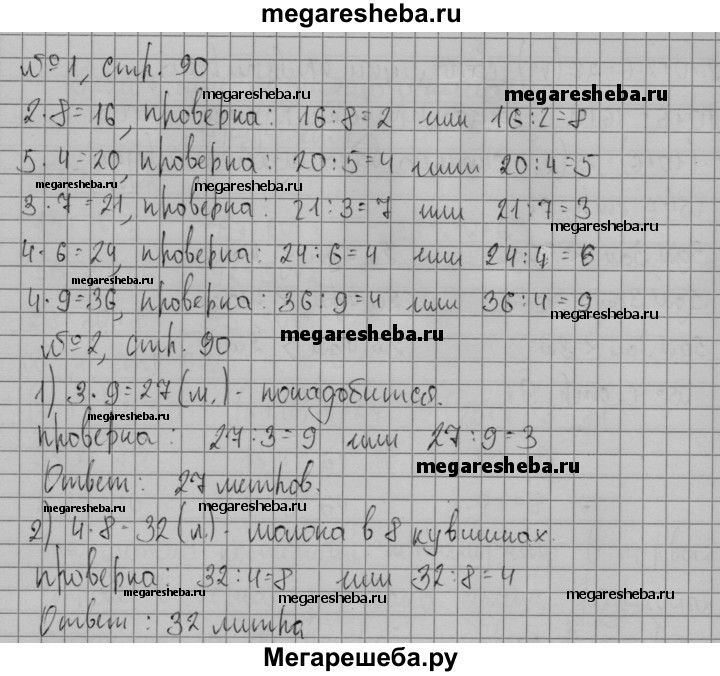 megaresheba.ru
№1, стр. 90
megaresheba.ru megaresheba.ru
2·8=16, проверка: 16:8=2 или 16:2=8
5·4=20, проверка: 20:5=4 или 20:4=5
megaresheba.ru megaresheba.ru
3·7=21, проверка: 21:3=7 или 21:7=3
megaresheba.ru
4·6=24, проверка: 24:6=4 или 24:4=6
megaresheba.ru megaresheba.ru
4·9=36, проверка: 36:9=4 или 36:4=9
megaresheba.ru megaresheba.ru
№2, стр. 90
1) 3·9=27 (м.) - понадобится.
megaresheba.ru
проверка: 27:3=9 или 27:9=3
megaresheba.ru
Ответ: 27 метров.
megaresheba.ru megaresheba.ru
2) 4·8=32 (л.) - молока в 8 кувшинах.
проверка: 32:4=8 или 32:8=4
megaresheba.ru megaresheba.ru megaresheba.ru
Ответ: 32 литра
Мегарешеба.ру